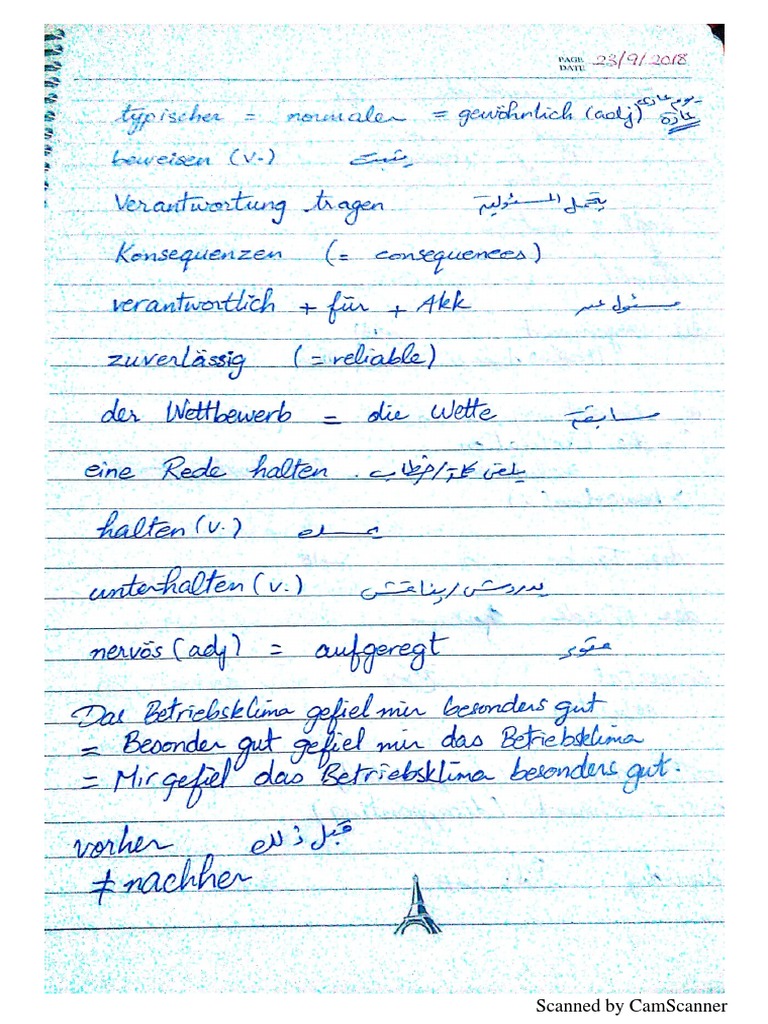 PAGE
DATE 23/9/2018
typischer = normaler = gewöhnlich (adj) يوم عادى
عادة
beweisen (v.) يثبت
Verantwortung tragen يتحمل المسئولية
Konsequenzen (= consequences)
verantwortlich + für + Akk مسئول عن
zuverlässig (= reliable)
der Wettbewerb = die Wette مسابقة
eine Rede halten يلقى كلمة/خطاب
halten (v.)
unterhalten (v.) يدردش/يناقش
nervös (adj) = aufgeregt
Das Betriebsklima gefiel mir besonders gut
= Besonder gut gefiel mir das Betriebsklima
= Mir gefiel das Betriebsklima besonders gut.
vorher قبل ذلك
≠ nachher
Scanned by CamScanner